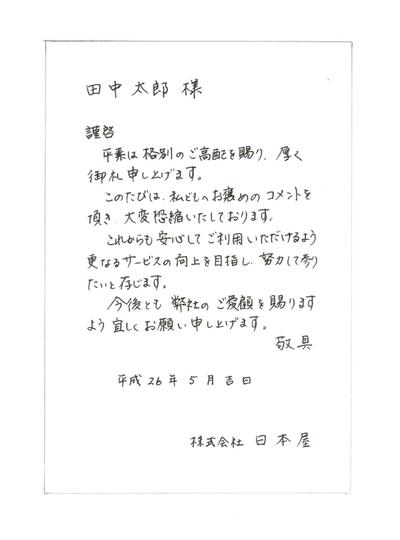 田中太郎 様
謹啓
平素は格別のご高配を賜り、厚く
御礼申し上げます。
このたびは、私どもへお褒めのコメントを
頂き、大変恐縮いたしております。
これからも安心してご利用いただけるよう
更なるサービスの向上を目指し、努力して参り
たいと存じます。
今後とも弊社のご愛顧を賜ります
よう宜しくお願い申し上げます。
敬具
平成26年5月吉日
株式会社 日本屋